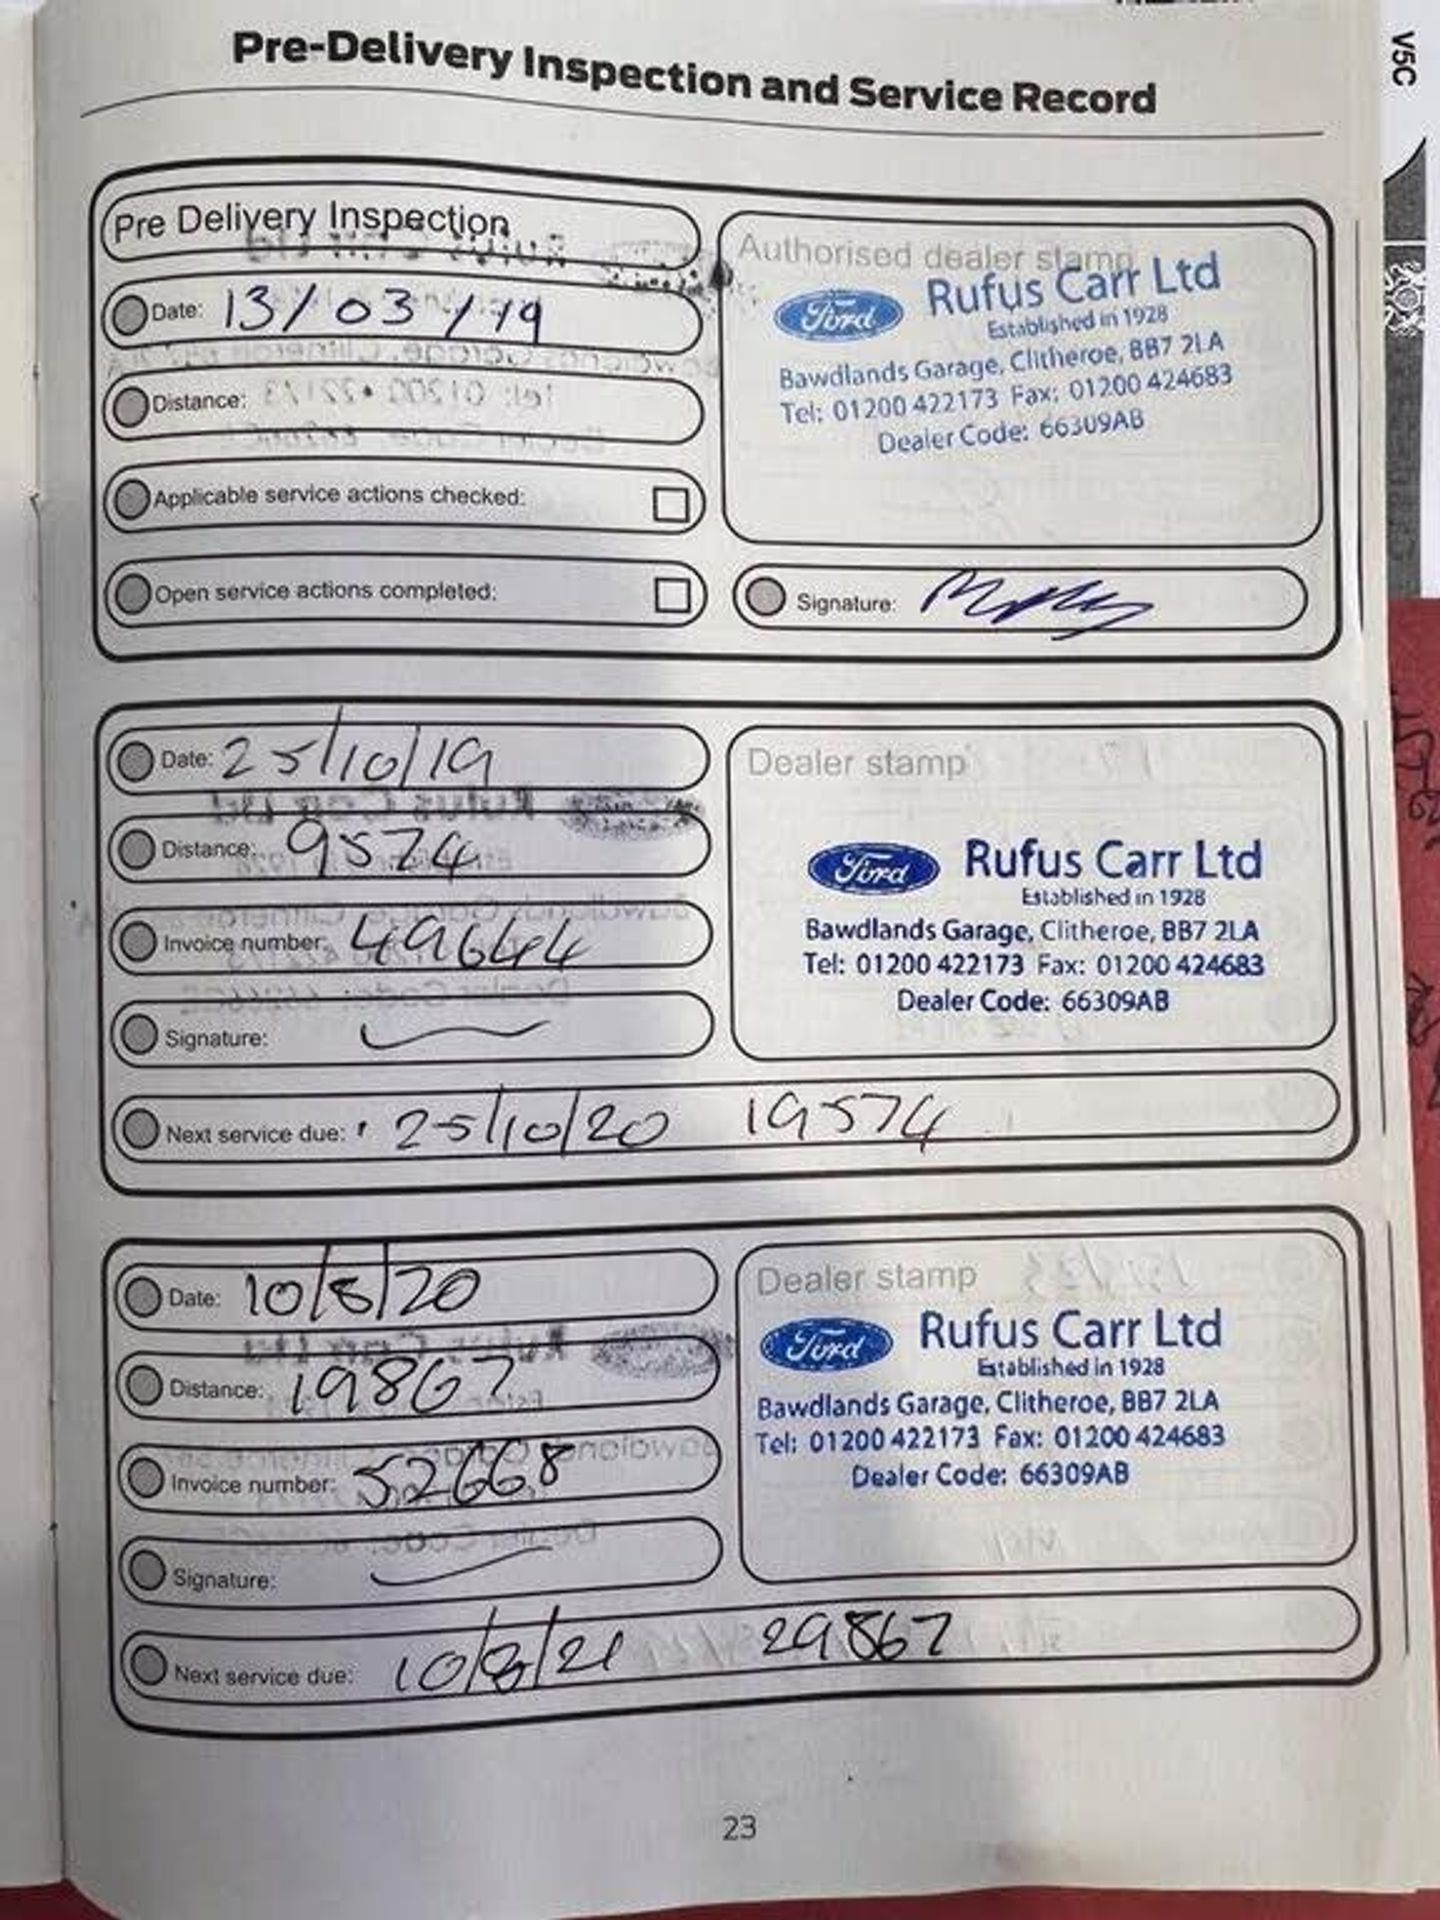 V5C
Pre-Delivery Inspection and Service Record
Pre Delivery Inspection
Date: 13/03/19
Distance:
Applicable service actions checked:
Open service actions completed:
Authorised dealer stamp
Ford Rufus Carr Ltd
Established in 1928
Bawdlands Garage, Clitheroe, BB7 2LA
Tel: 01200 422173 Fax: 01200 424683
Dealer Code: 66309AB
Signature:
Date: 25/10/19
Distance: 9574
Invoice number: 49644
Signature:
Dealer stamp
Ford Rufus Carr Ltd
Established in 1928
Bawdlands Garage, Clitheroe, BB7 2LA
Tel: 01200 422173 Fax: 01200 424683
Dealer Code: 66309AB
Next service due: 25/10/20 19574
Date: 10/8/20
Distance: 19867
Invoice number: 52668
Signature:
Dealer stamp
Ford Rufus Carr Ltd
Established in 1928
Bawdlands Garage, Clitheroe, BB7 2LA
Tel: 01200 422173 Fax: 01200 424683
Dealer Code: 66309AB
Next service due: 10/8/21 29867
23